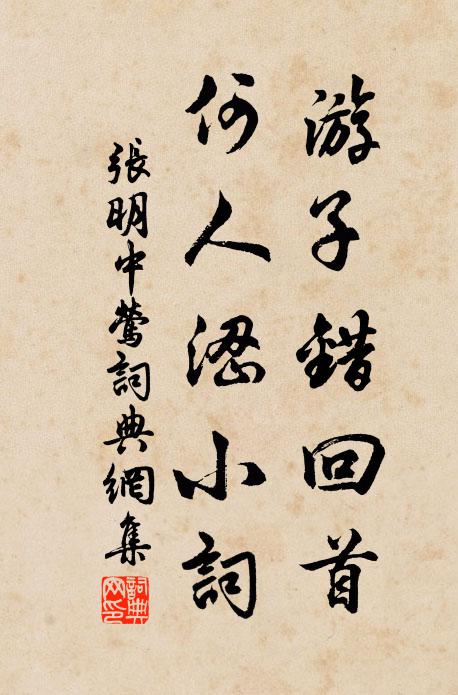 游子錯回首
何人小詞
張明中鶯詞典網集
詞典
网印